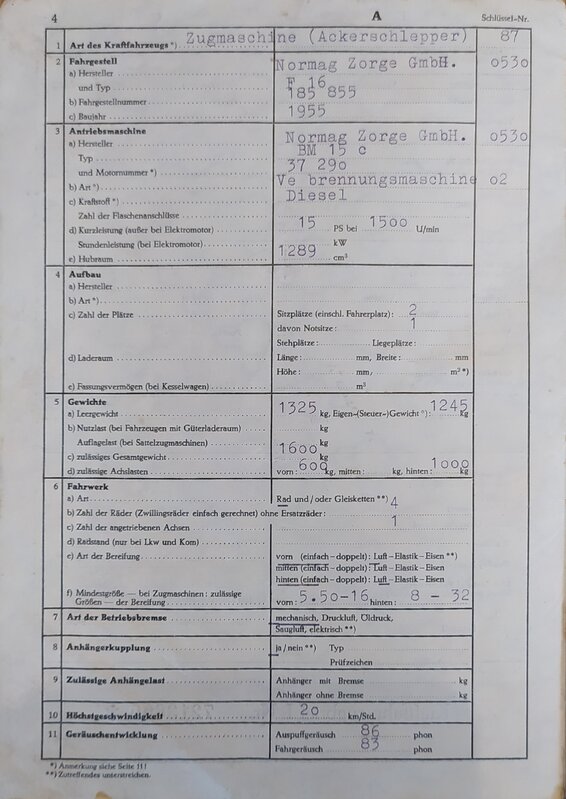 4 A Schlüssel-Nr.
1 Art des Kraftfahrzeugs *) Zugmaschine (Ackerschlepper) 87
2 Fahrgestell
a) Hersteller Normag Zorge GmbH. o53o
und Typ F 16
b) Fahrgestellnummer 185 855
c) Baujahr 1955
3 Antriebsmaschine
a) Hersteller Normag Zorge GmbH. o53o
Typ BM 15 c
und Motornummer *) 37 29o
b) Art *) Ve brennungsmaschine o2
c) Kraftstoff *) Diesel
Zahl der Flaschenanschlüsse
d) Kurzleistung (außer bei Elektromotor) 15 PS bei 15oo U/min
Stundenleistung (bei Elektromotor) kW
e) Hubraum 1289 cm³
4 Aufbau
a) Hersteller
b) Art *)
c) Zahl der Plätze Sitzplätze (einschl. Fahrerplatz): 2
davon Notsitze: 1
Stehplätze: Liegeplätze:
d) Laderaum Länge: mm, Breite: mm
Höhe: mm, m² *)
e) Fassungsvermögen (bei Kesselwagen) m³
5 Gewichte
a) Leergewicht 1325 kg, Eigen-(Steuer-)Gewicht *): 1245 kg
b) Nutzlast (bei Fahrzeugen mit Güterladeraum) kg
Auflagelast (bei Sattelzugmaschinen) kg
c) zulässiges Gesamtgewicht 16oo kg
d) zulässige Achslasten vorn: 6oo kg, mitten: kg, hinten: 1ooo kg
6 Fahrwerk
a) Art Rad und/oder Gleisketten **)
b) Zahl der Räder (Zwillingsräder einfach gerechnet) ohne Ersatzräder: 4
c) Zahl der angetriebenen Achsen 1
d) Radstand (nur bei Lkw und Kom)
e) Art der Bereifung vorn (einfach – doppelt): Luft – Elastik – Eisen **)
mitten (einfach – doppelt): Luft – Elastik – Eisen
hinten (einfach – doppelt): Luft – Elastik – Eisen
f) Mindestgröße — bei Zugmaschinen: zulässige
Größen — der Bereifung vorn: 5.5o-16 hinten: 8 - 32
7 Art der Betriebsbremse mechanisch, Druckluft, Öldruck,
Saugluft, elektrisch **)
8 Anhängerkupplung ja / nein **) Typ
Prüfzeichen
9 Zulässige Anhängelast Anhänger mit Bremse kg
Anhänger ohne Bremse kg
10 Höchstgeschwindigkeit 2o km/Std.
11 Geräuschentwicklung Auspuffgeräusch 86 phon
Fahrgeräusch 83 phon
*) Anmerkung siehe Seite 11!
**) Zutreffendes unterstreichen.